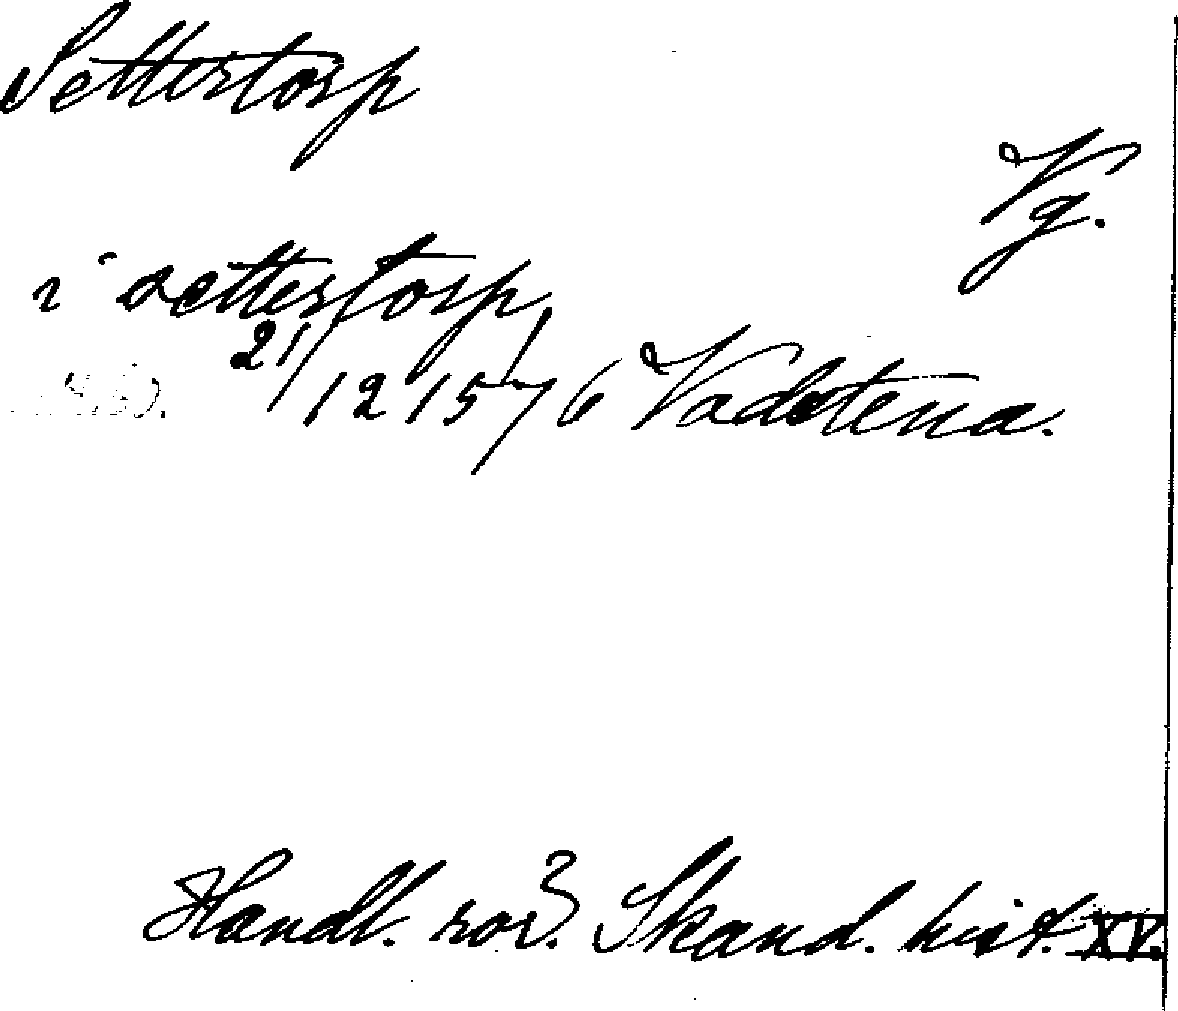 Settertorp
Vg.
i settertorp
21/12 1576 Vadstena.
Handl. rör. Skand. hist. XV.